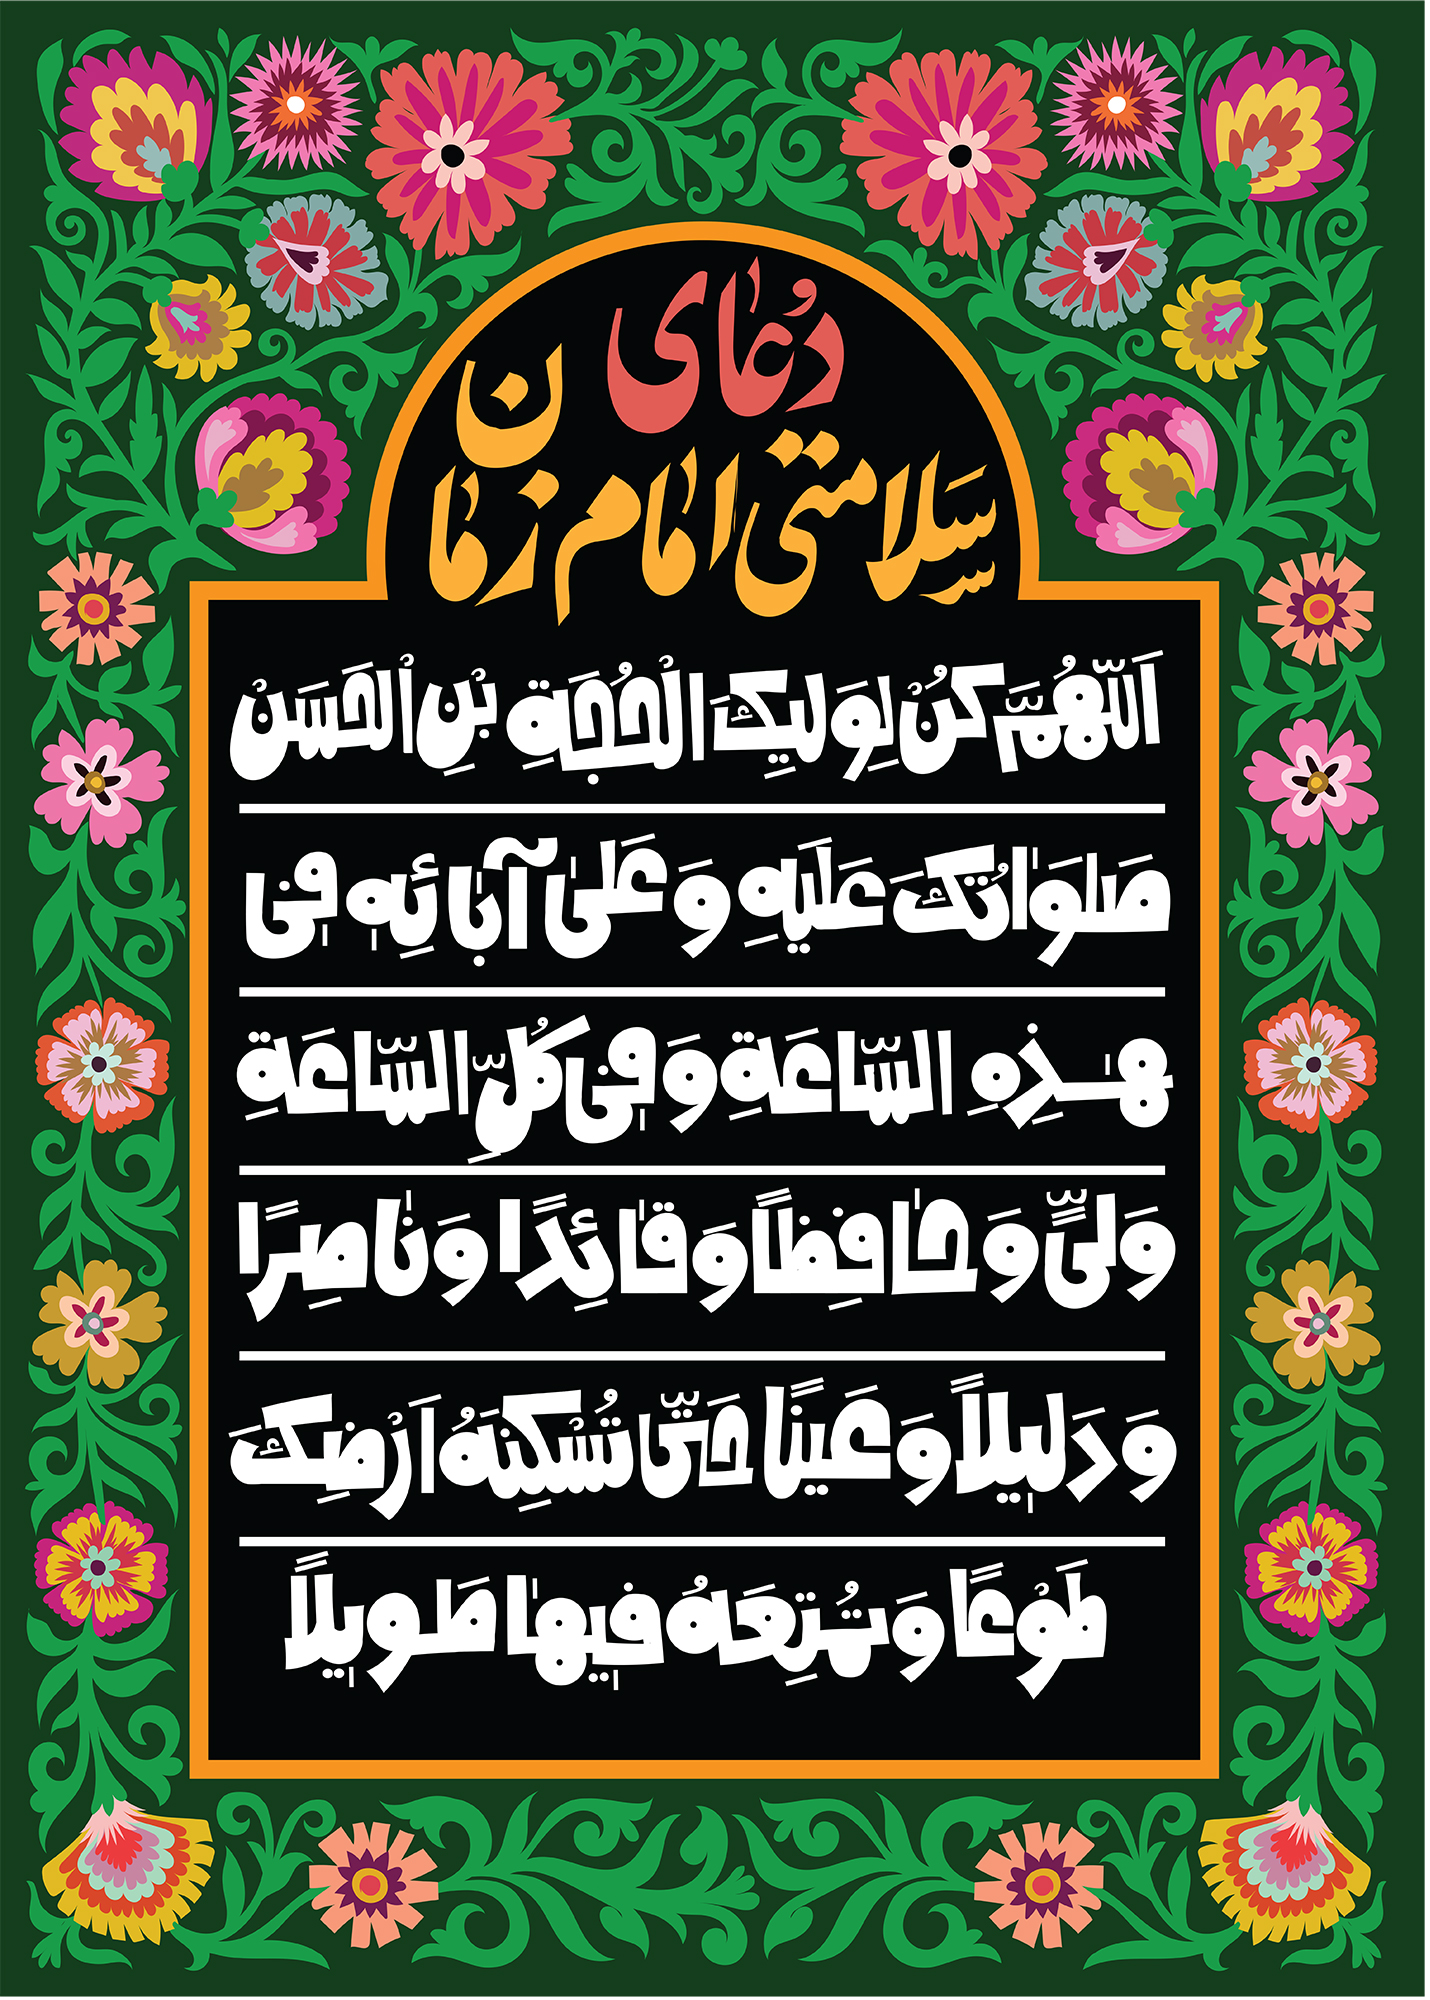 دُعای
سلامتی امام زمان
اَللّهُمَّ كُنْ لِوَلیِكَ الْحُجَةِ بْنِ اْلحَسَنْ
صَلَوٰاتُكَ عَلَیهِ وَ عَلیٰ آبٰائِهٖ فی
هٰذِهِ السّاعَةِ وَ فی كُلِّ السّاعَةِ
وَلیًّ وَ حٰافِظاً وَ قٰائِدًا وَ نٰاصِرًا
وَ دَلیٖلاً وَ عَینًا حَتّیٰ تُسْكِنَهُ اَرْضِكَ
طَوْعًا وَ تُمَتِعَهُ فیٖهٰا طَویٖلاً